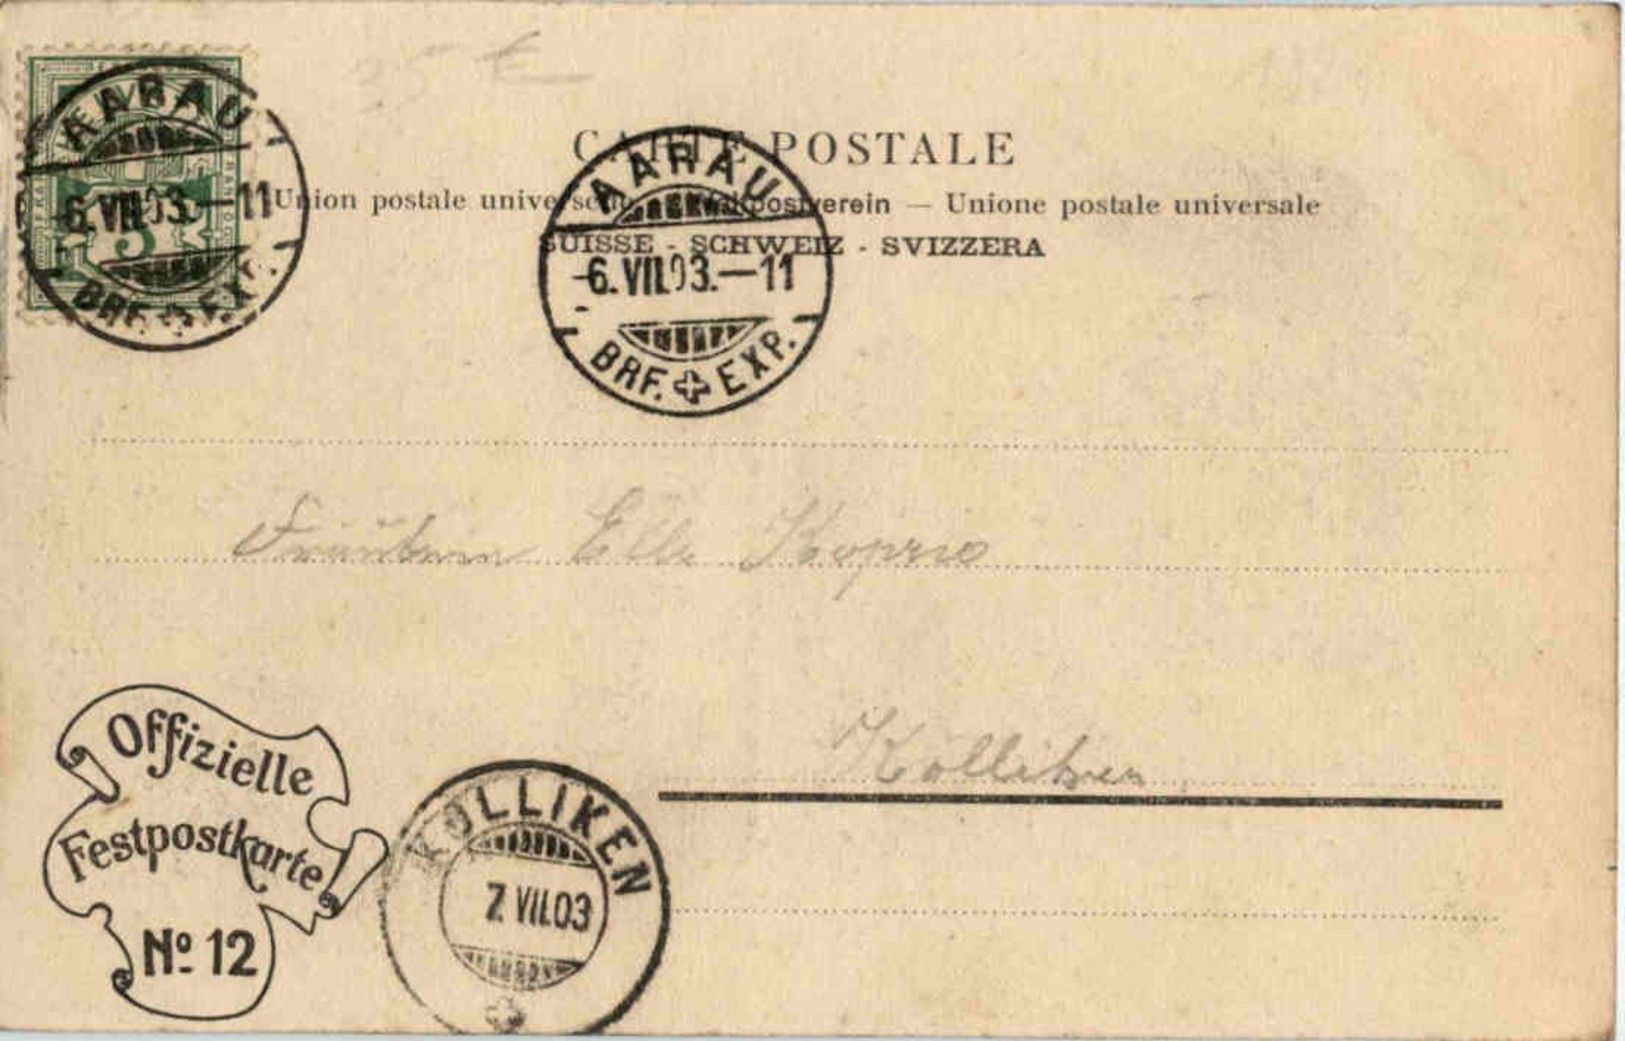 35 €
CARTE POSTALE
Union postale universelle — Weltpostverein — Unione postale universale
SUISSE - SCHWEIZ - SVIZZERA
AARAU
6.VII.03.—11
BRF. EXP.
AARAU
-6.VII.03.—11
BRF. EXP.
5
Fräulein
Kölliken
Offizielle
Festpostkarte
No 12
KÖLLIKEN
7.VII.03